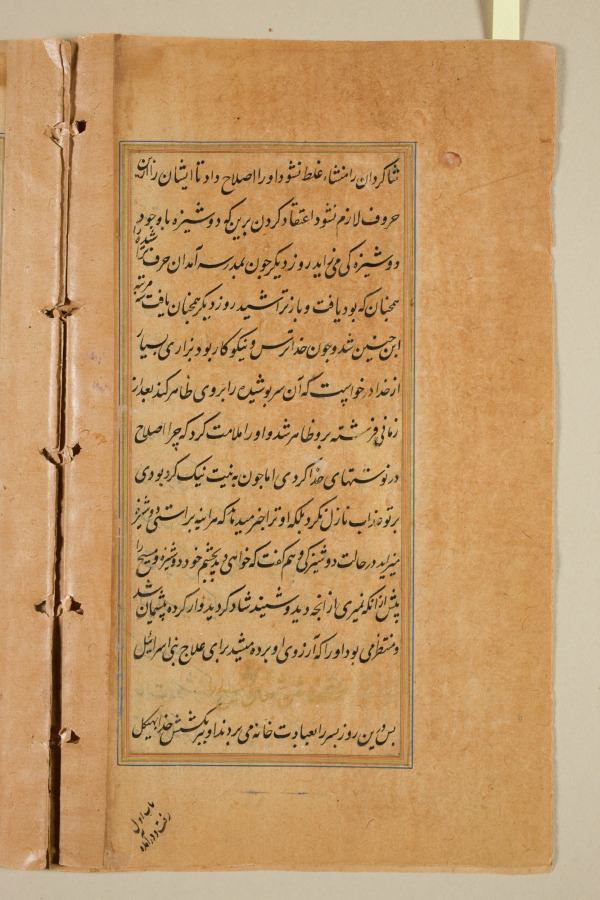 شاکردان را منشاء غلط نشود او را اصلاح داد تا ایشان را ازین
حروف لازم نشود اعتقاد کردن برین که دوشیزه با وجود
دوشیزه کی می زاید روز دیکر چون بمدرسه آمدان حرف تراشیده را
همچنان که بود یافت و باز تراشید روز دیکر همچنان یافت سه مرتبه
این چنین شد و چون خدا ترس و نیکوکار بود بزاری بسیار
از خدا درخواست که آن سر پوشیده را بروی ظاهر کند بعد از
زمانی فرشته برو ظاهر شد و او را ملامت کرد که چرا اصلاح
در نوشتهای خدا کردی اما چون به نیت نیک کرد بودی
بر تو عذاب نازل نکرد بلکه او ترا خبر میدهد که هر آینه براستی دوشیزه
میزاید در حالت دوشیزکی و هم کفت که خواهی دید بچشم خود دوشیزه و مسیح را
پیش از آنکه نمیری از انچه دید و شنید شاد کردید و از کرده پشیمان شد
و منتظر می بود او را که آرزوی او برده میشد برای علاج بنی اسرائیل
پس درین روز پسر را بعبادت خانه می بردند او بر کشش خدا بهیکل
باب اول
رفت و درآمده